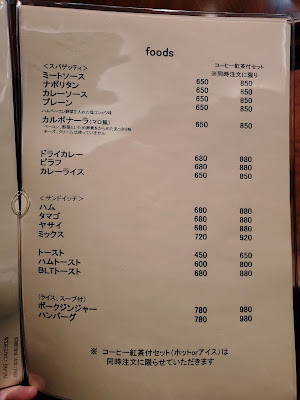 foods
コーヒー紅茶付セット
※同時注文に限り
<スパゲッティ>
ミートソース 650 850
ナポリタン 650 850
カレーソース 650 850
プレーン 650 850
ハムベーコン野菜を入れた塩コショウ味
カルボナーラ(マロ風) 650 850
ドライカレー 680 880
ピラフ 680 880
カレーライス 650 850
<サンドイッチ>
ハム 680 880
タマゴ 680 880
ヤサイ 680 880
ミックス 720 920
トースト 450 650
ハムトースト 600 800
BLTトースト 680 880
(ライス、スープ付)
ポークジンジャー 780 980
ハンバーグ 780 980
※ コーヒー紅茶付セット(ホットorアイス)は
同時注文に限らせていただきます